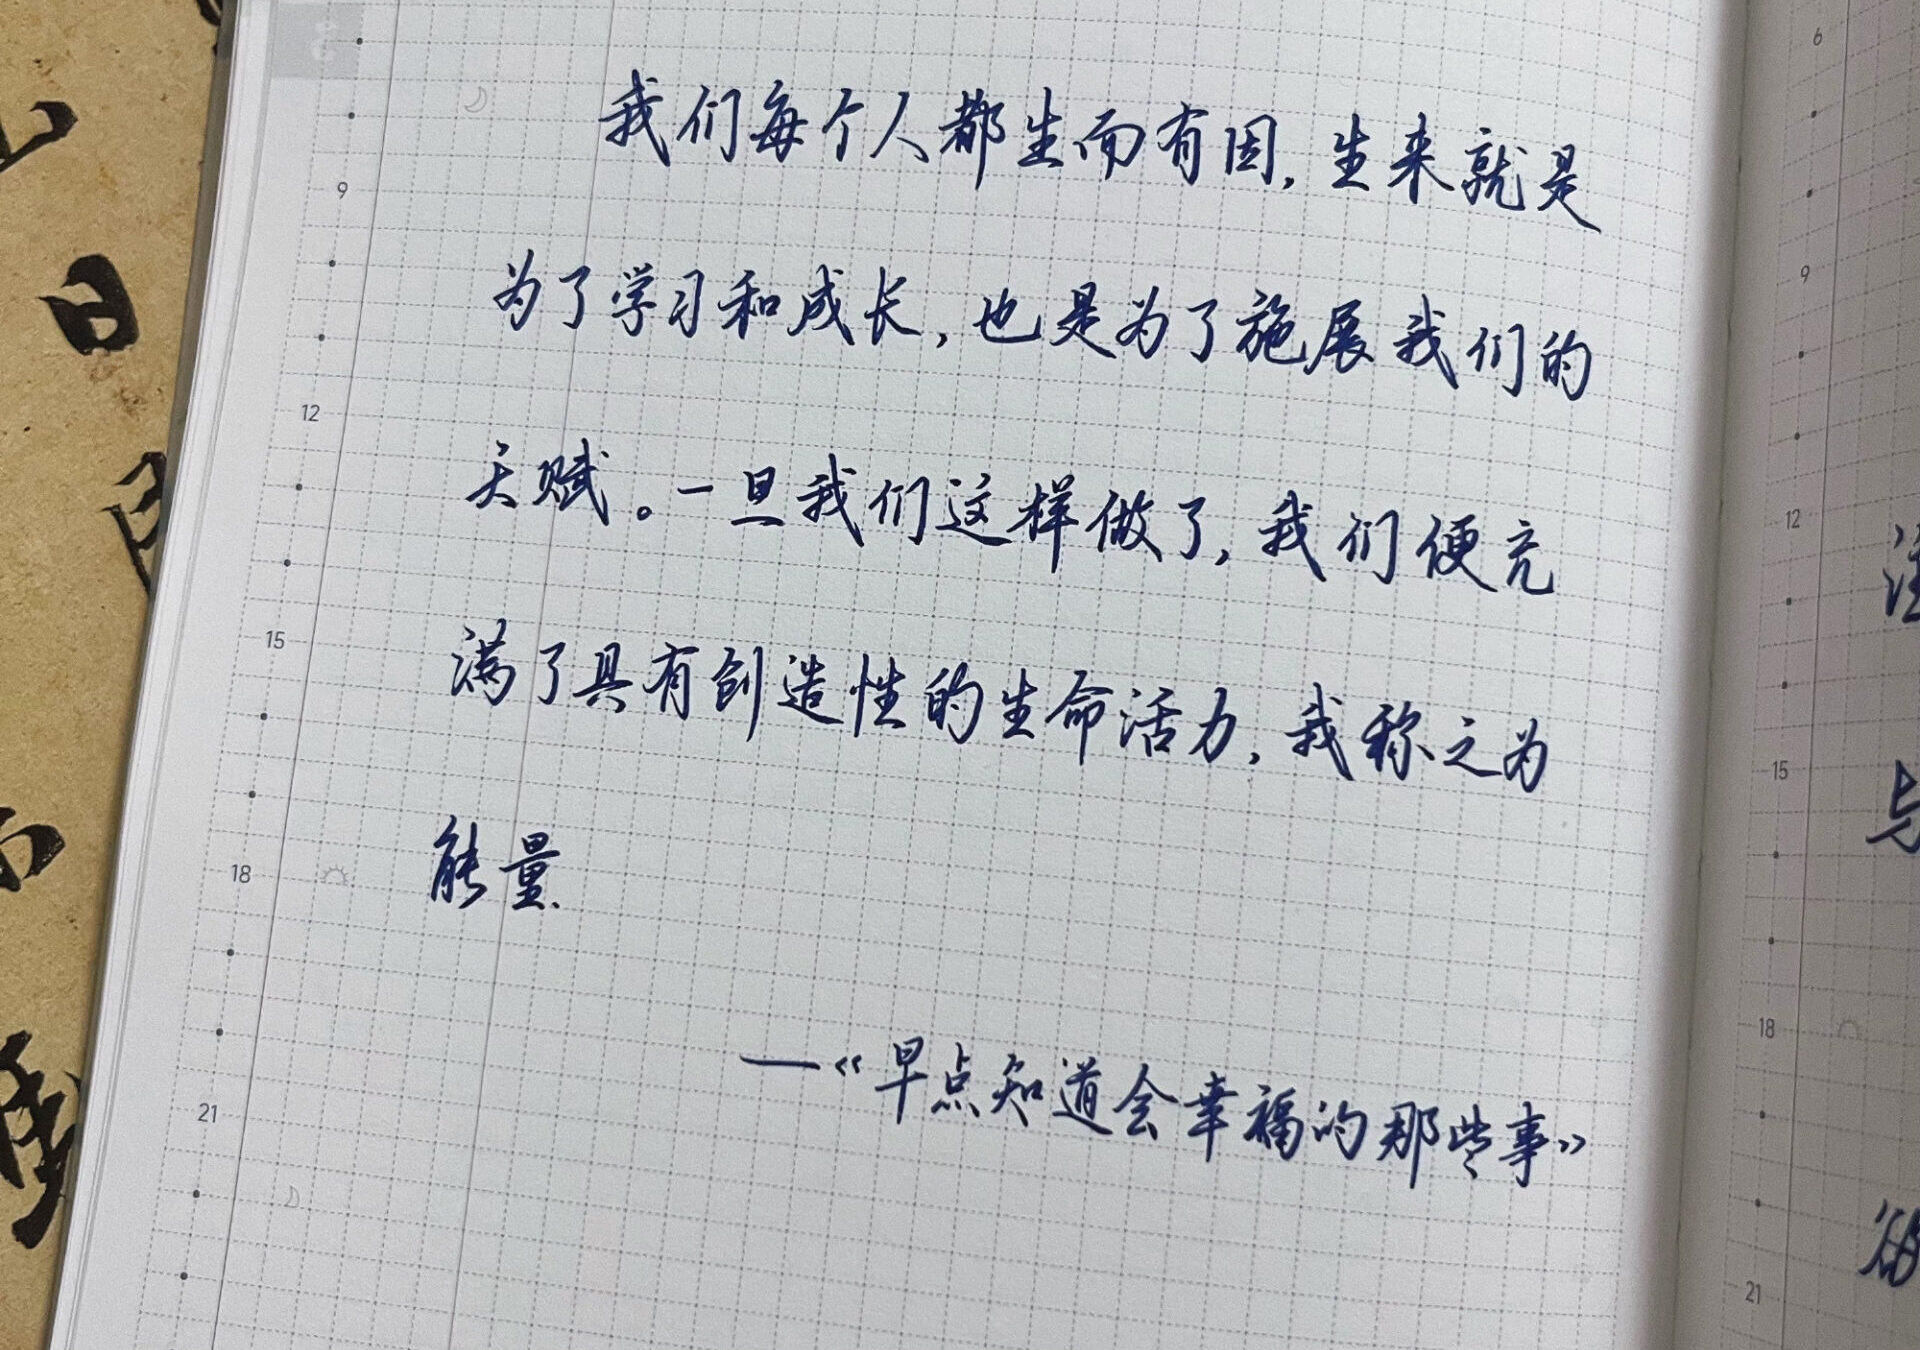 我们每个人都生而有因,生来就是
为了学习和成长,也是为了施展我们的
天赋。一旦我们这样做了,我们便充
满了具有创造性的生命活力,我称之为
能量.
—《早点知道会幸福的那些事》
9
12
15
18
21
6
9
12
15
与
18
21